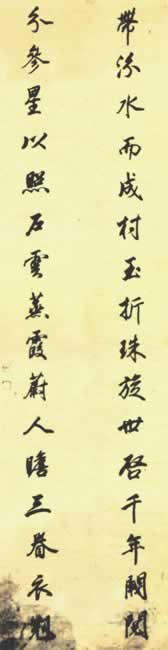 帶流水而成村玉折珠旋世啓千年閥閱
分參星以照石雲蒸霞蔚人瞻三眷衣冠